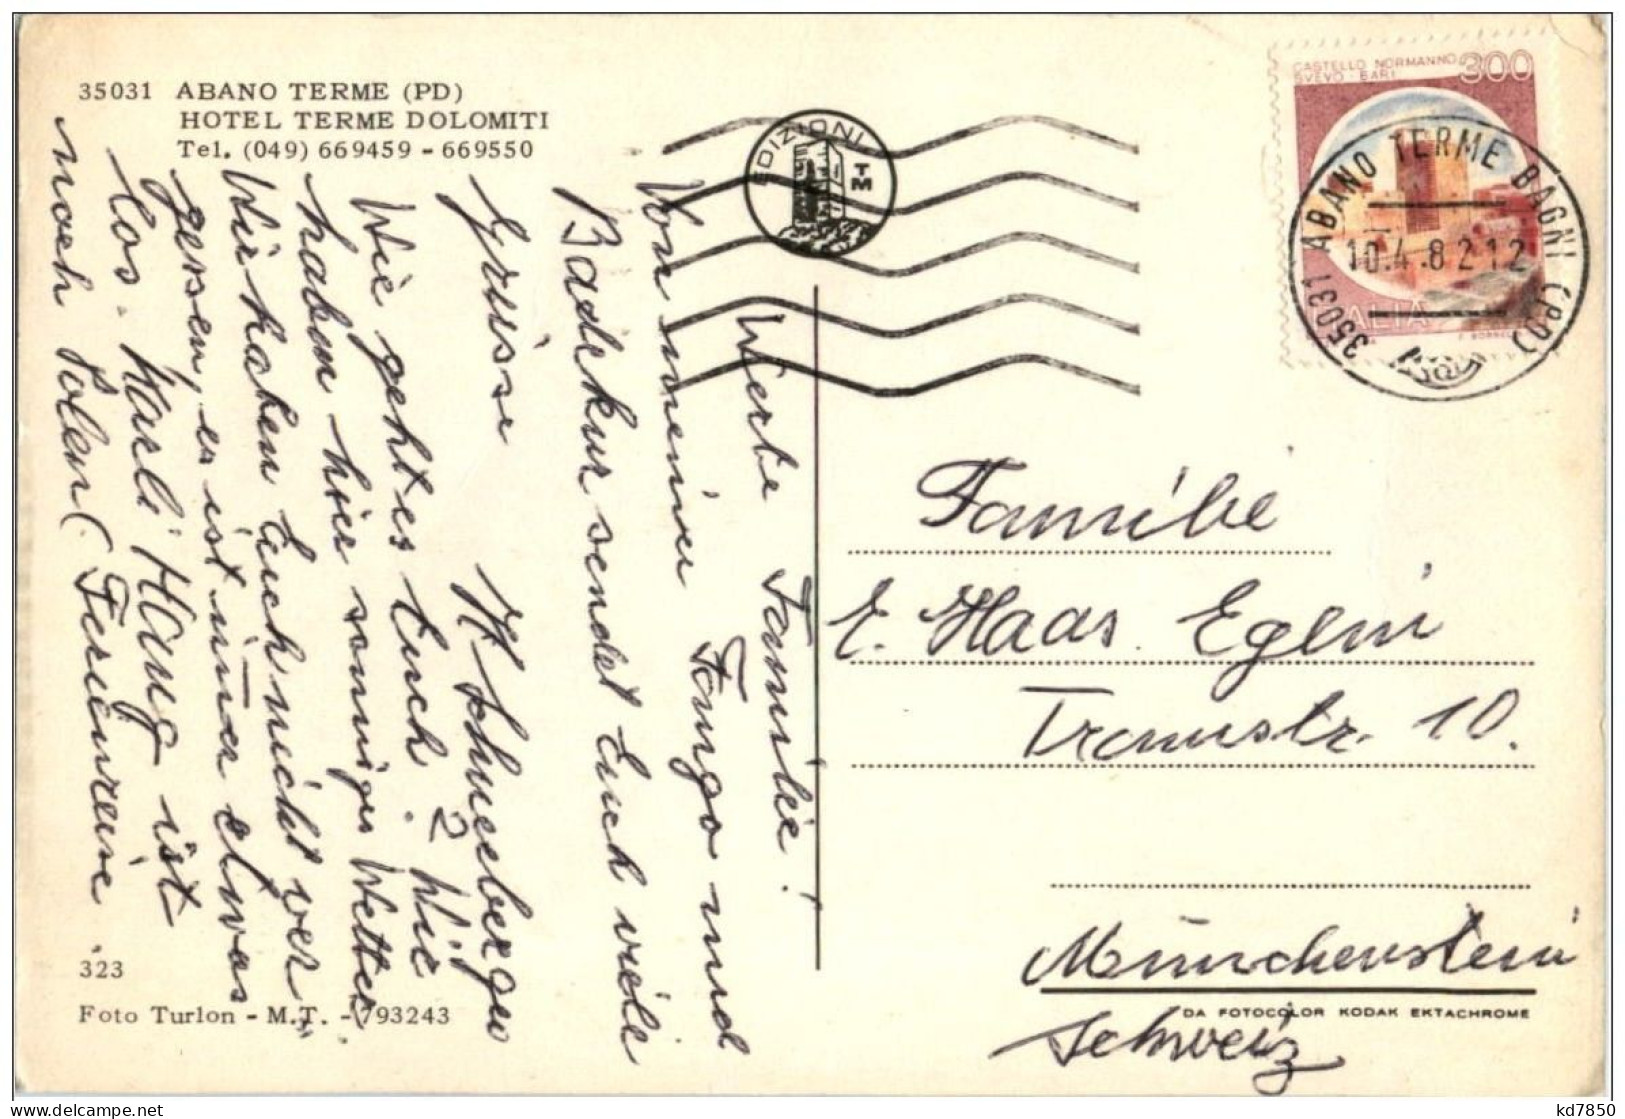 35031 ABANO TERME (PD)
HOTEL TERME DOLOMITI
Tel. (049) 669459 - 669550
EDIZIONI
TM
CASTELLO NORMANNO
SVEVO - BARI
300
ITALIA
35031 ABANO TERME BAGNI (PD)
10.4.82 12
Werte Familie!
Von meiner Fango und
Badekur sendet Euch viele
Grüsse H Schneeberger
Wie geht es Euch? Wir
haben hier sonniges Wetter.
Wir haben Euch nicht ver"
gessen, es ist immer etwas
los. Karli Haug ist
noch Solen (Ferienreise.
Familie
E. Haas Eglin
Tramstr. 10.
Münchenstein
Schweiz
323
Foto Turlon - M.T. - 793243
DA FOTOCOLOR KODAK EKTACHROME
kd7850